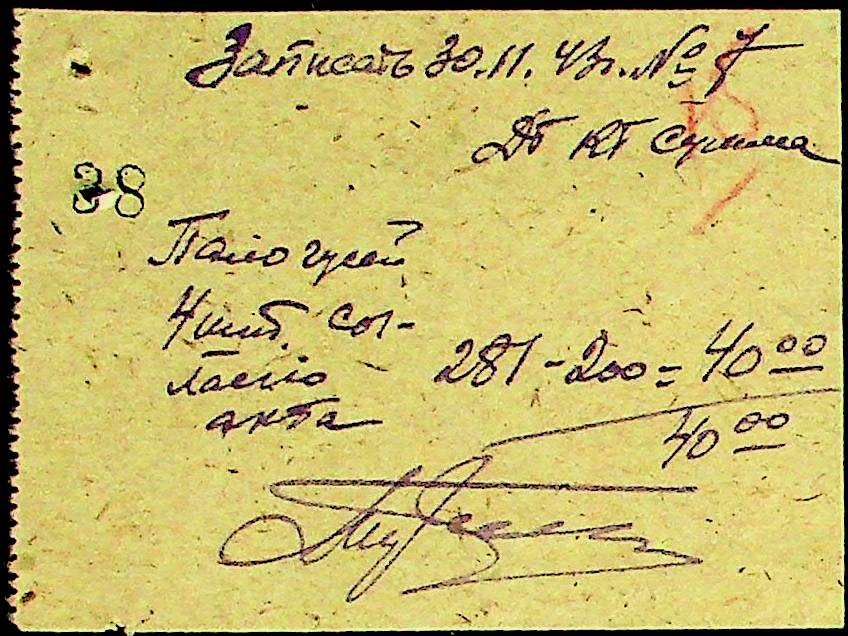 Записать 30.11.43г. № 7
Дт Кт Сумма
38
Пало гусей
4 шт. сог-
ласно 281 - 200 = 40 00
акта
40 00